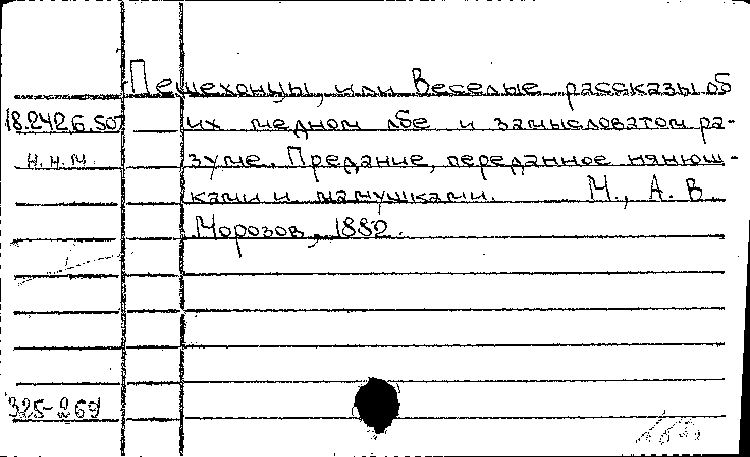 Пешехонцы, или Веселые рассказы об
18.242.6.507 их медном лбе и замысловатом ра-
н.н.м зуме. Предание, переданное нянюш-
ками и мамушками. М., А. В.
Морозов, 1882.
325-269